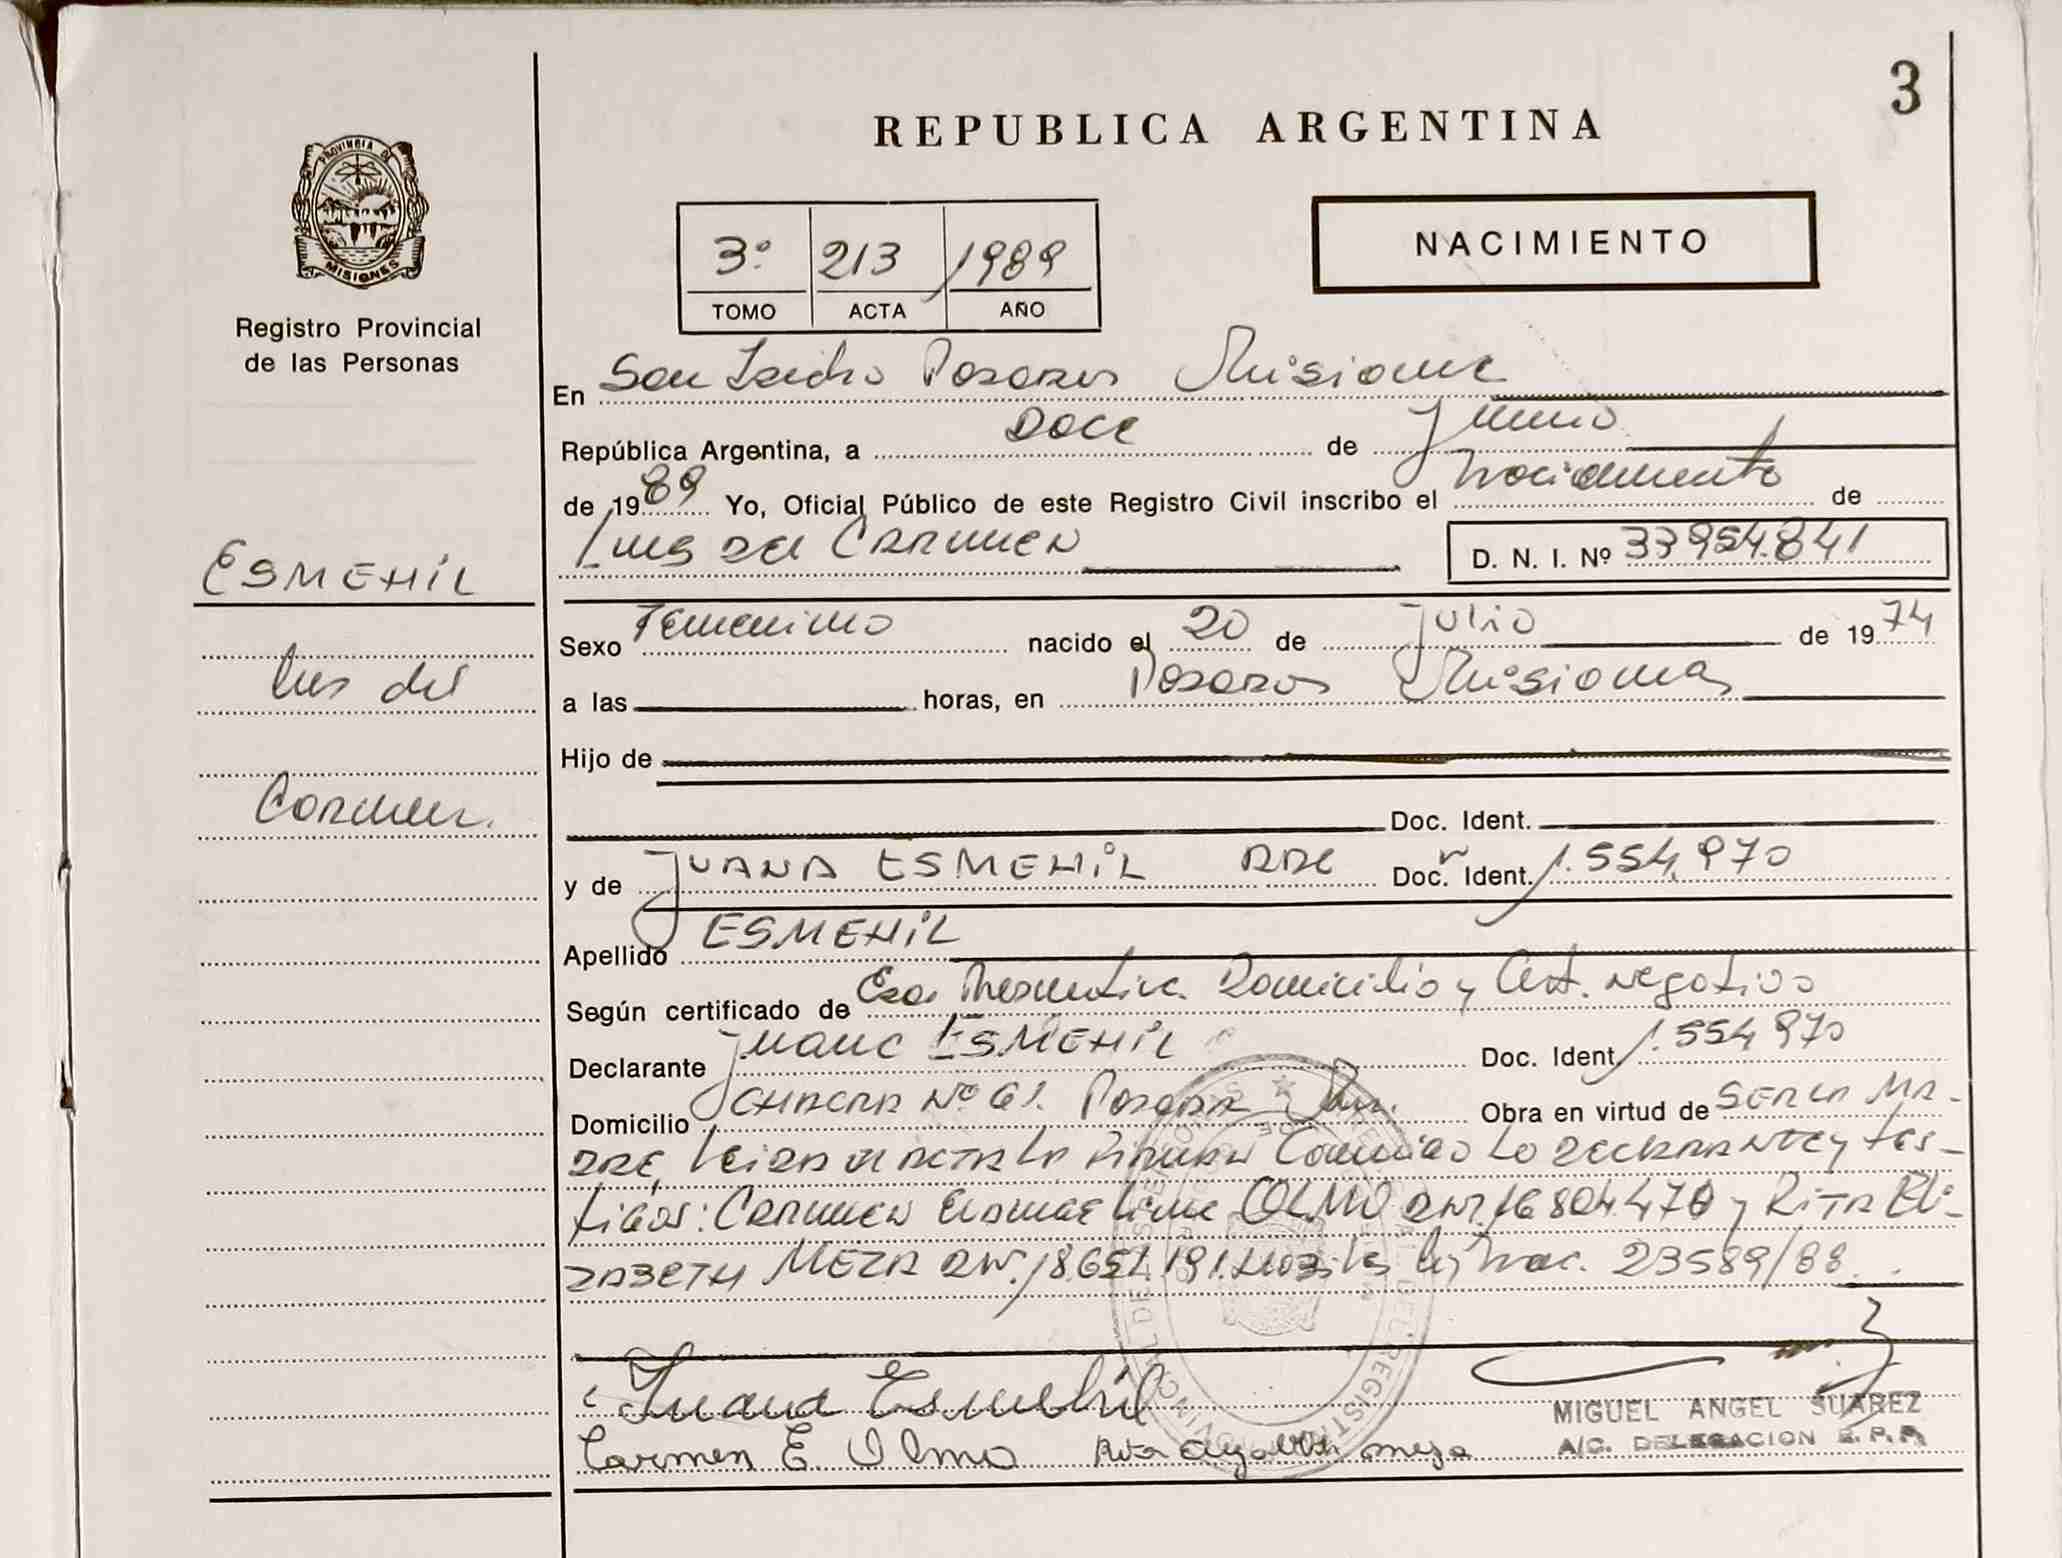 3
REPUBLICA ARGENTINA
PROVINCIA DE
MISIONES
Registro Provincial
de las Personas
NACIMIENTO
3º 213 1989
TOMO ACTA AÑO
En San Isidro Posadas Misiones
República Argentina, a Doce de Junio
de 1989 Yo, Oficial Público de este Registro Civil inscribo el Nacimiento de
Luis del Carmen
D. N. I. Nº 33954.841
ESMEHIL
Luis del
Carmen.
Sexo Femenino nacido el 20 de Julio de 1974
a las horas, en Posadas Misiones
Hijo de
Doc. Ident.
y de JUANA ESMEHIL Doc. Ident. 1.554.970
Apellido ESMEHIL
Según certificado de Presuntiva Domicilio y Cert. negativo
Declarante Juana ESMEHIL Doc. Ident. 1.554970
Domicilio CHACRA Nº 61. Posadas Obra en virtud de SER LA MA-
DRE, Leida el acta la firman Conmigo la DECLARANTE y tes-
tigos: Carmen OLMO 16804.470 y RITA ELI-
ZABETH MEZA 18.651.191 ley Nac. 23589/88
Juana Esmehil
Carmen E. Olmo Rita Meza
MIGUEL ANGEL SUAREZ
A/C. DELEGACION